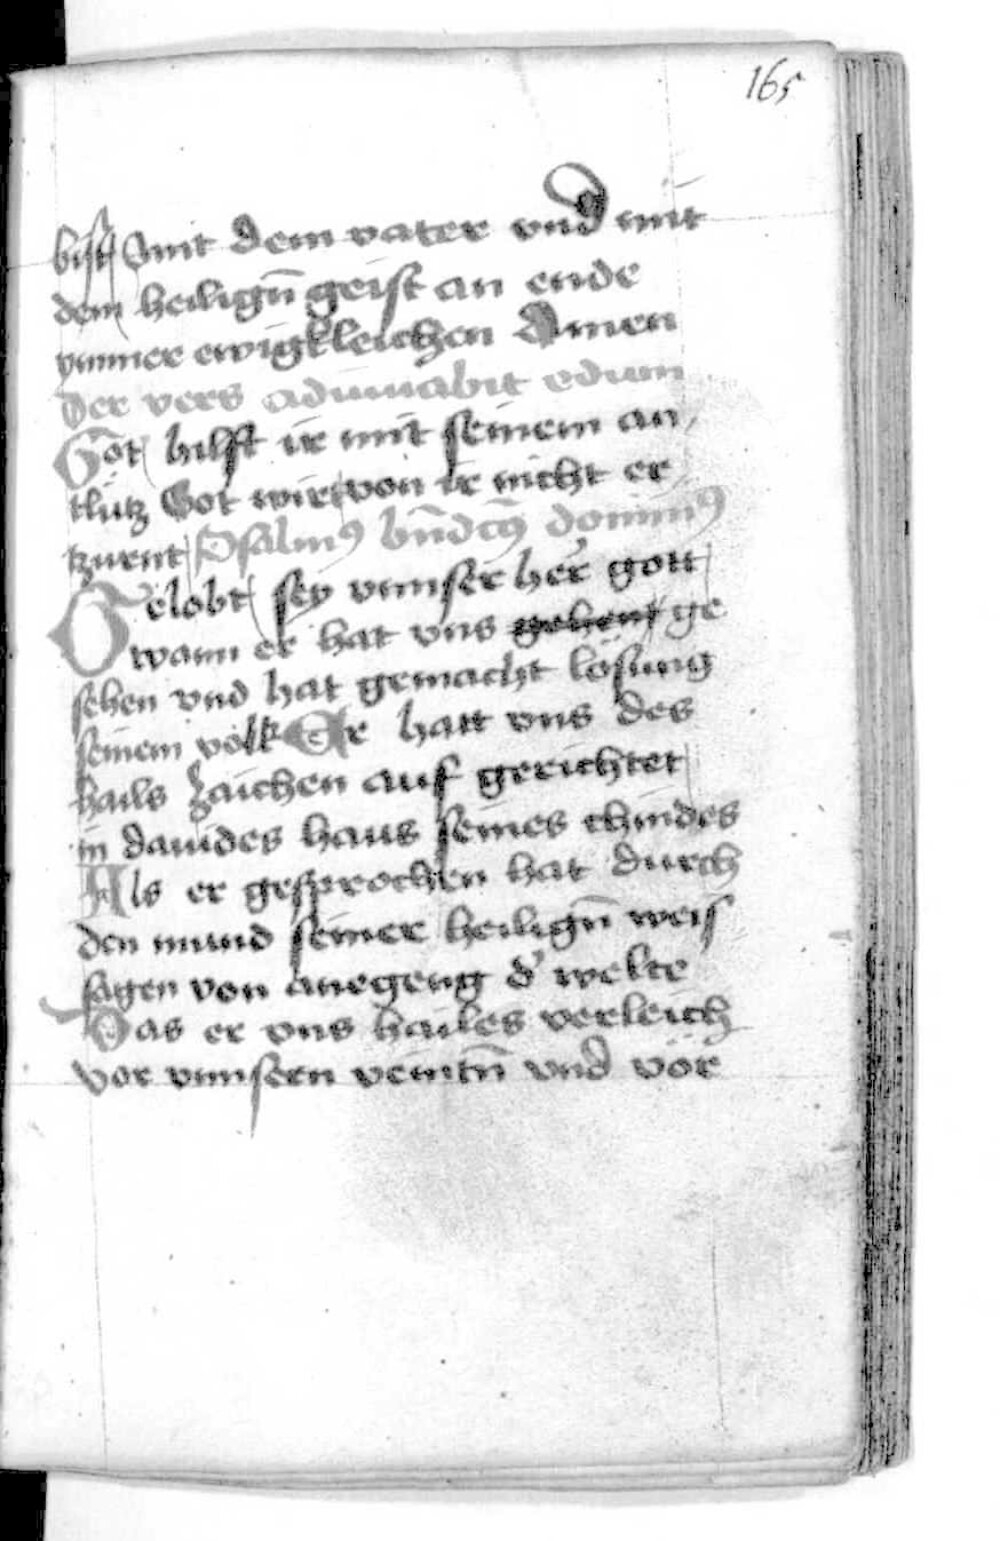 165
bist mit dem vater vnd mit
dem heilign̄ geist an ende
ymmer ewigkleichen Amen
Der vers adiuuabit edum
Got hilft ir mit seinem an
tlütz Got wirt von ir nicht er
tzurnt Psalmꝰ bn̄dcꝰ dominꝰ
Gelobt sey vnnser her̄ gott
wann er hat vns gehent ge
sehen vnd hat gemacht lösung
seinem volk Er hatt vns des
hails zaichen auf gerichtet
in dauides haus seines chindes
Als er gesprochen hat durch
den mund seiner heilign̄ weis
sagen von anegeng d' welte
Das er vns hailes verleich
vor vnnsern veintn̄ vnd vor